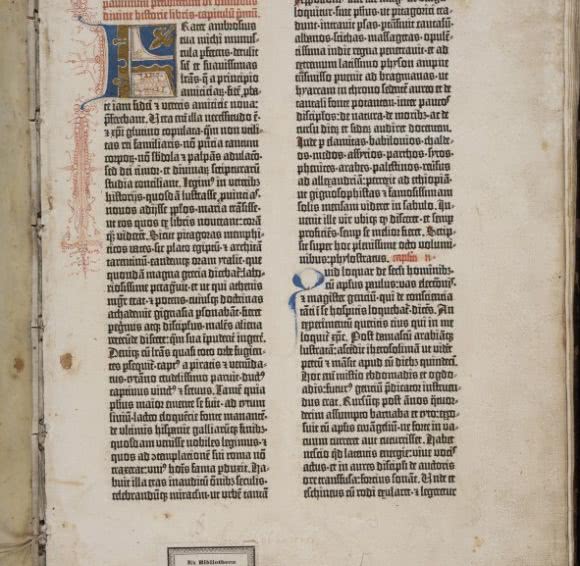 paulinum presbiterum de omnibus
diuine historie libris·capitulū pmū.
Frater ambrosius
tua michi munus-
cula pferens·detulit
sil' et suauissimas
lrās·q̄ a principio
amiciciaȝ·fidei pba-
te iam fidei et veteris amicicie noua:
pferebant. Vera eni illa necessitudo ē·
et xpi glutino copulata·qm non vtili-
tas rei familiaris·nō pñtia tantum
corpoꝝ·nō sbdola et palpās adulacō·
sed dei timor·et diuinaꝝ scripturarū
studia conciliant. Legimꝰ in veterib·
historijs·quosdā lustrasse puincias·
nouos adijsse pplos·maria trāsisse·
ut eos quos ex libris nouerant: corā
qȝ viderēt. Sicut pitagoras memphi-
ticos vates·sic plato egiptū·et architā
tarentinū·eandemqȝ oram ytalie·que
quondā magna grecia dicebat:labo-
riosissime peragrauit·et ut qui athenis
mgr erat·et potens·cuiusqȝ doctrinas
achademie gignasia psonabāt·fieret
peginus atqȝ discipulus·malēs aliena
verecūde discere:qm sua īpudent ingere.
Deniqȝ cū lrās quasi toto orbe fugiētes
psequit·captus a piratis et venūda-
tus·tyrāno crudelissimo paruit·ductꝰ
captiuus vinctꝰ et seruus. Tamē quia
phūs maior emente se fuit·ad tytum
liuium·lacteo eloquētie fonte manantē·
de vltimis hispanie galliarūqȝ finibȝ·
quosdam venisse nobiles legimus·et
quos ad ꝯtemplacionē sui roma nō
traxerat:uniꝰ hoīs fama pduxit. Ha-
buit illa etas inauditū oīnibȝ seculis·
celebrandūqȝ miraculū·ut vrbē tantā
loquitur·siue phūs·ut pitagorici tra-
dunt·intrauit psas·ptrāsiuit caucasū·
albanos·scithas·massagetas·opulē-
tissima indie regna penetrauit·et ad
extremum latissimo physon ampne
trāsmisso puenit ad bragmanas·ut
hyarcam in throno sedentē aureo et de
tantali fonte potantem·inter paucos
discipulos·de natura·de moribȝ·ac de
cursu dierū et siderū audiret docentem.
Inde p elamitas·babilonios·chalde-
os·medos·assyrios·parthos·syros·
phenices·arabes·palestinos·reuersus
ad allexandriā:perrexit ad ethiopiā·
ut gignosophistas et famosissimam
solis mensam videret in sabulo. In-
uenit ille vir vbiqȝ qd disceret·et semp
proficiēs·semp se melior fieret. Scrip-
sit super hoc plenissime octo volumi-
nibus:phylostratus. captm ii
Quid loquar de seculi hominibȝ·
cū aplus paulus·vas electōis·
et magister gentiū·qui de conscientia
tāti ī se hospitis loquebat·dicēs. An
experimentū queritis eius qui in me
loquit xpc. Post damascū arabiāqȝ
lustratā:ascēdit iherosolimā ut videt
petrū et māsit apud eū diebȝ quindecī.
Hoc eni mistio ebdomadis et ogdo-
adis:futurꝰ gentiū pdicator instruen-
dus erat. Rursūqȝ post ānos quator-
decim assumpto barnaba et tyto:expo-
suit cū aplis euāgeliū·ne forte in va-
cuum curreret aut cucurrisset. Habet
nescio qd latentis energie:viue vocis
actus·et in aures discipli de auctoris
ore transfusa:forcius sonāt. Vnde et
eschineus cū rodi exularet·et legeretur
Ex Bibliotheca